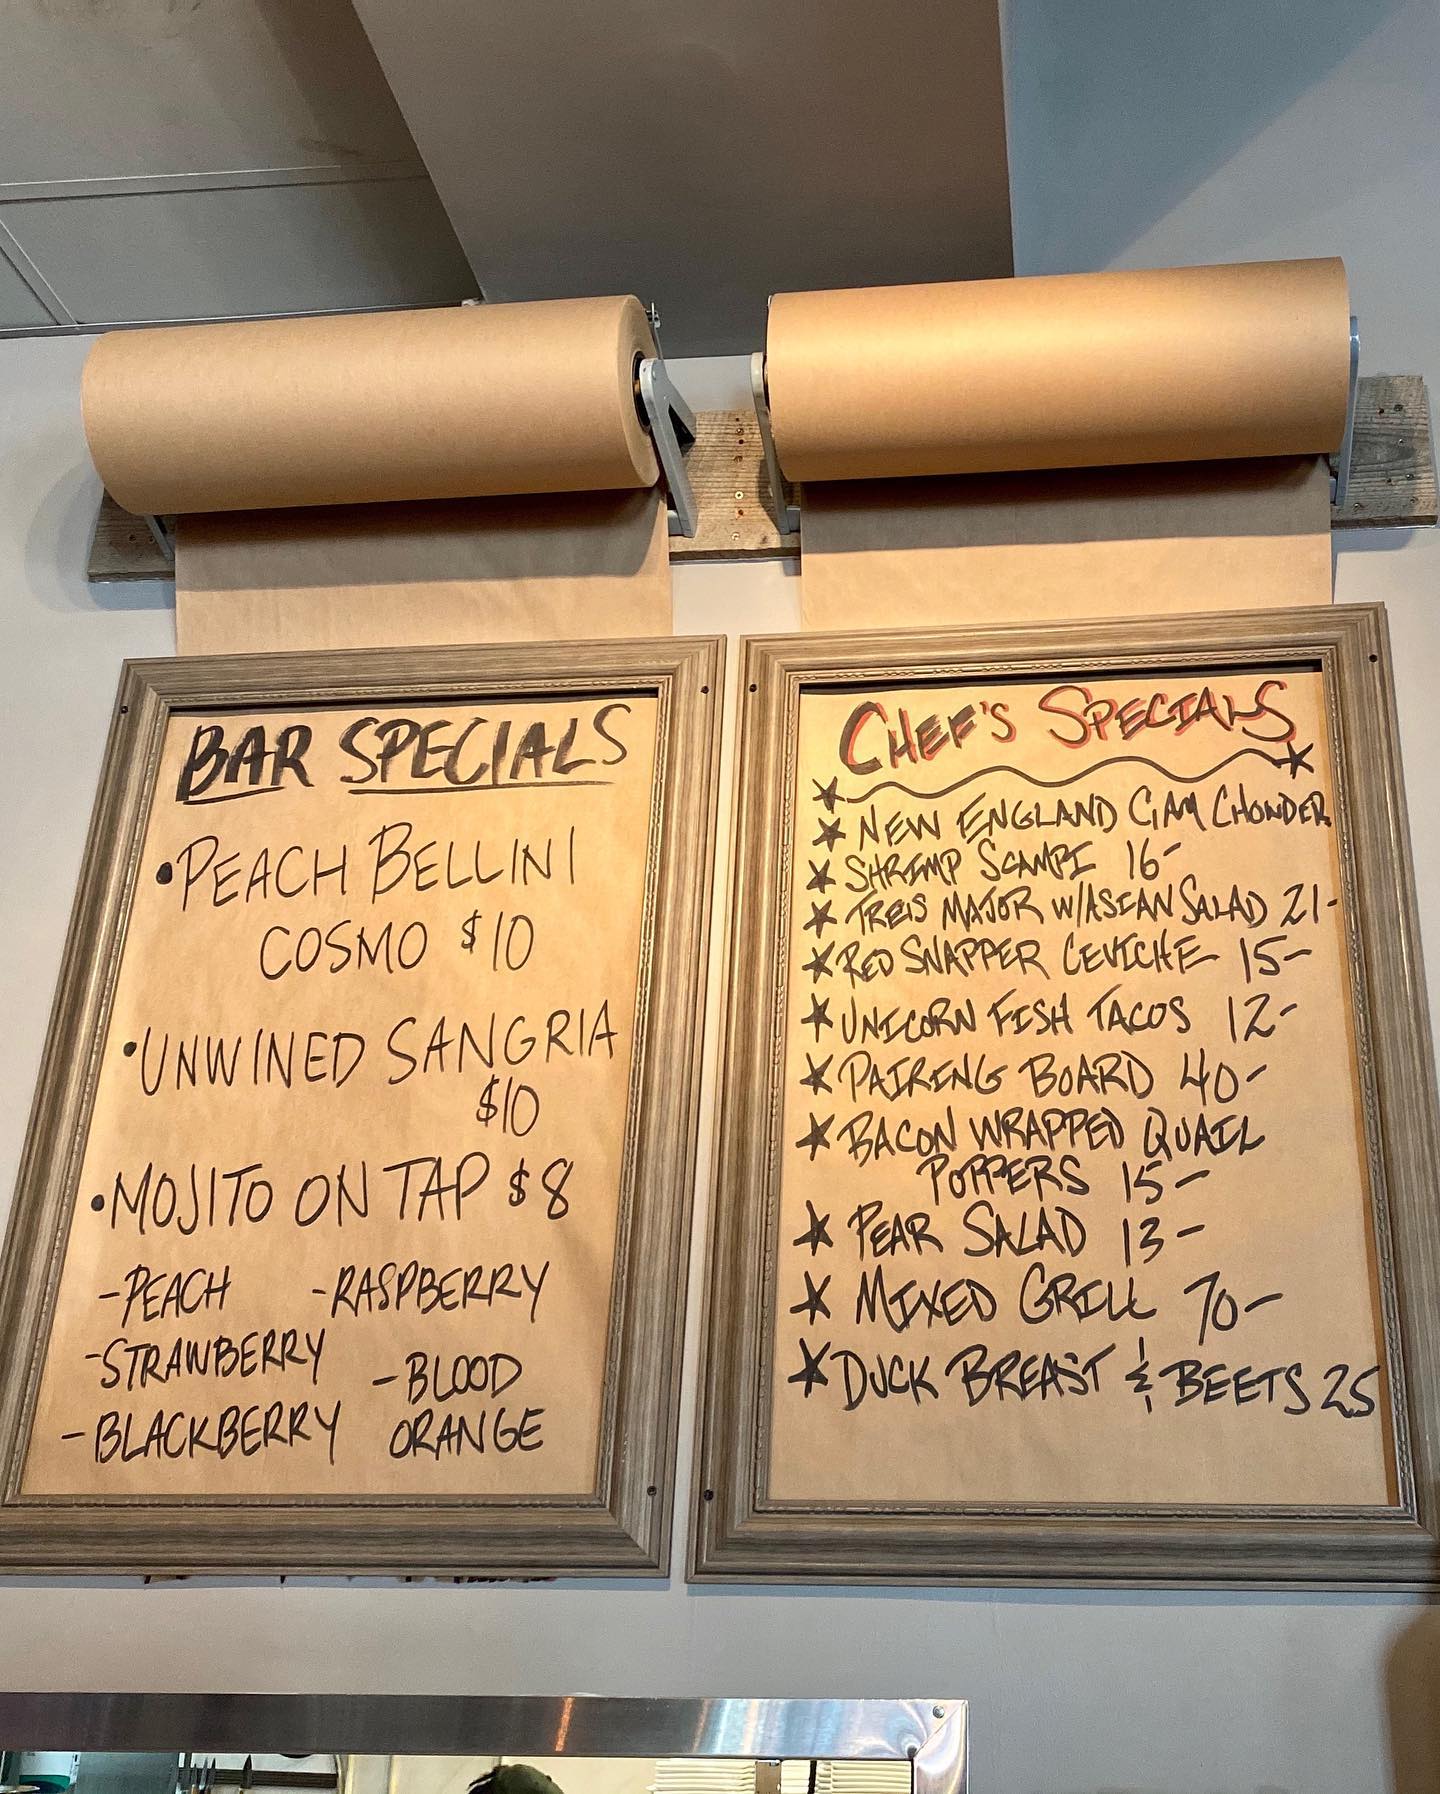 BAR SPECIALS
• PEACH BELLINI
COSMO $10
• UNWINED SANGRIA
$10
• MOJITO ON TAP $8
- PEACH - RASPBERRY
- STRAWBERRY
- BLOOD
- BLACKBERRY ORANGE
CHEF'S SPECIALS
★ NEW ENGLAND CLAM CHOWDER
★ SHRIMP SCAMPI 16-
★ TREIS MAJOR W/ASIAN SALAD 21-
★ RED SNAPPER CEVICHE 15-
★ UNICORN FISH TACOS 12-
★ PAIRING BOARD 40-
★ BACON WRAPPED QUAIL
POPPERS 15-
★ PEAR SALAD 13-
★ MIXED GRILL 70-
★ DUCK BREAST & BEETS 25